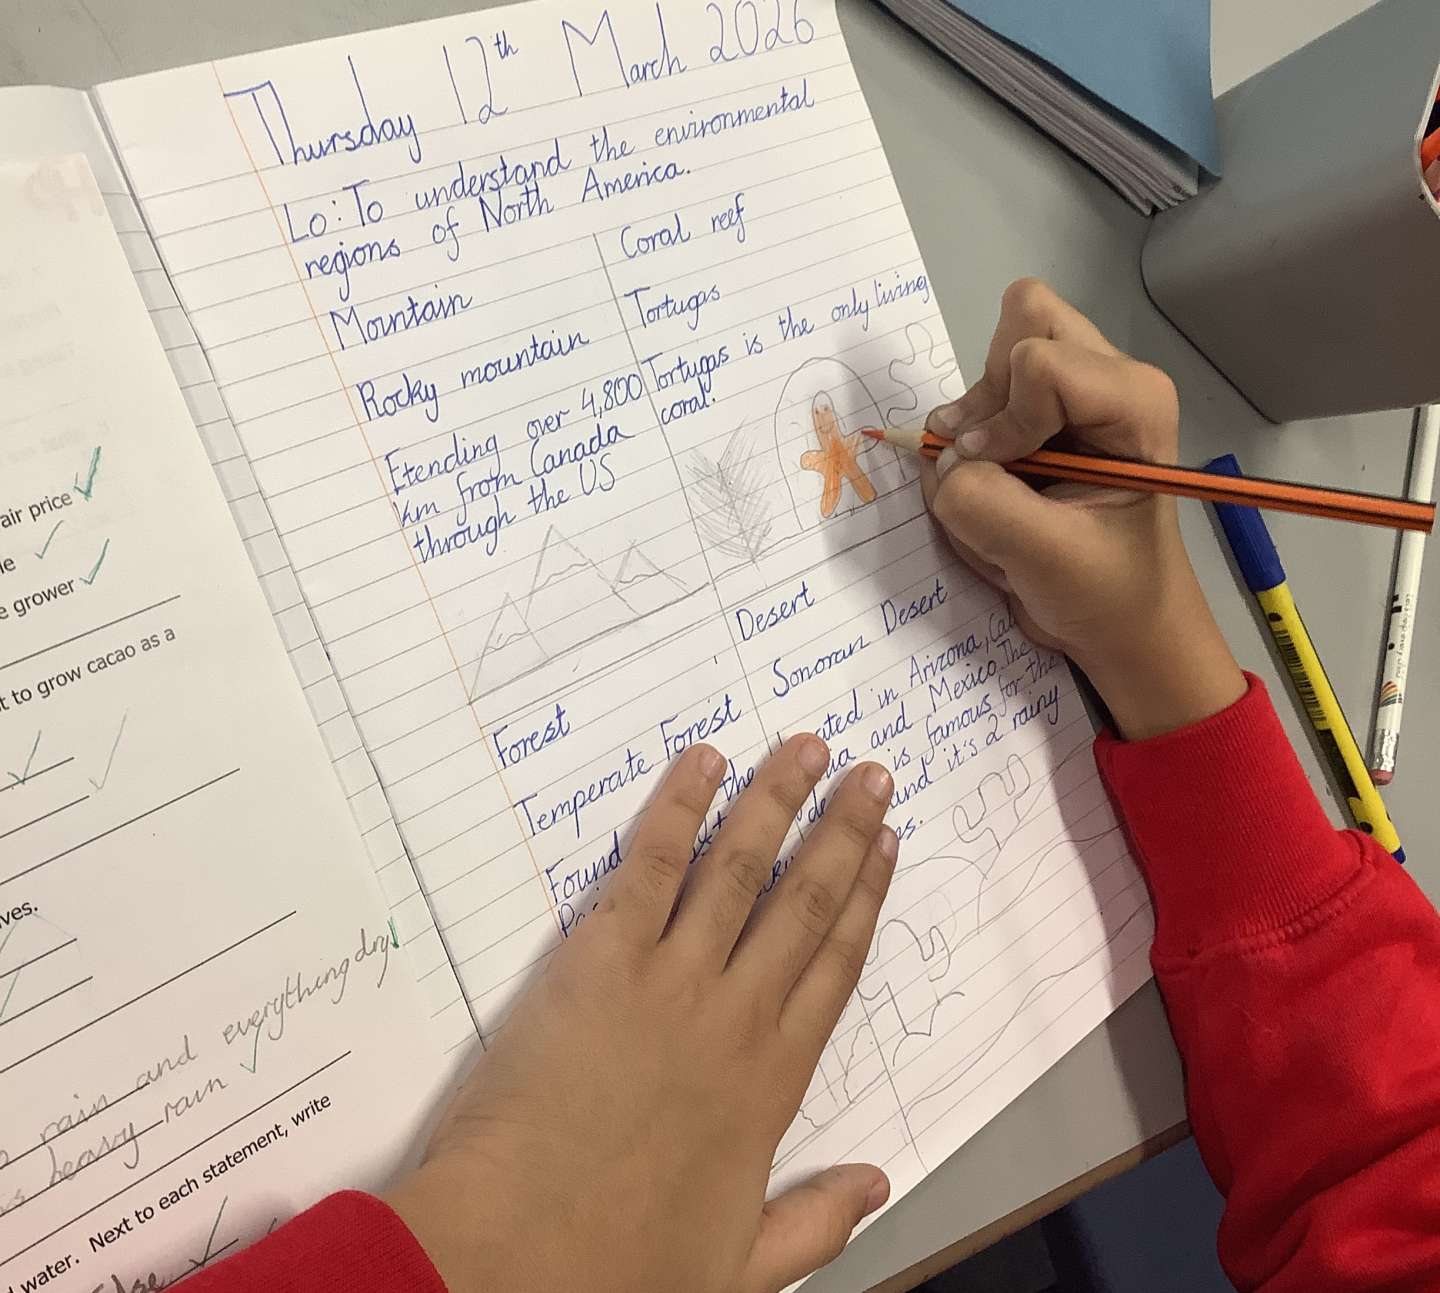 Thursday 12th March 2026
Lo: To understand the environmental
regions of North America.
Mountain
Rocky mountain
Etending over 4,800
km from Canada
through the US
Coral reef
Tortugas
Tortugas is the only living
coral.
Forest
Temperate Forest
Found the
Desert
Sonoran Desert
in Arizona,
and Mexico. The
is famous for the
and it's 2 rainy
air price
e grower
t to grow cacao as a
ves.
rain and everything dry
heavy rain
water. Next to each statement, write